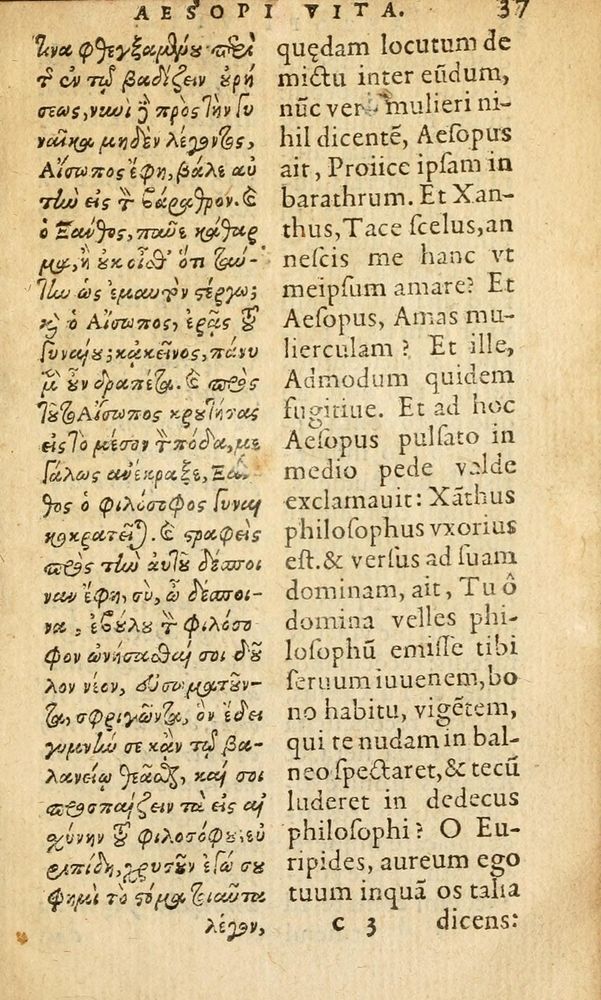 AESOPI VITA. 37
τινα φθεγξαμένου περὶ
τῆς ἐν τῷ βαδίζειν οὐρή
σεως, νυνὶ δὲ πρὸς τὴν γυ
ναῖκα μηδὲν λέγοντος,
Αἴσωπος ἔφη, βάλε αὐ
τὴν εἰς τὸ βάραθρον. καὶ
ὁ Ξάνθος, παῦε κάθαρ
μα, ἢ οὐκ οἶσθ' ὅτι ταύ-
την ὡς ἐμαυτὸν στέργω;
καὶ ὁ Αἴσωπος, ἐρᾷς τοῦ
γυναίου; κἀκεῖνος, πάνυ
μὲν οὖν δραπέτα. καὶ πρὸς
τοῦτο Αἴσωπος κροτήσας
εἰς τὸ μέσον τὸν πόδα, με
γάλως ἀνέκραξε, Ξάν
θος ὁ φιλόσοφος γυναι
κοκρατεῖται. καὶ στραφεὶς
πρὸς τὴν αὐτοῦ δέσποι
ναν ἔφη, σὺ, ὦ δέσποι-
να, ἐβούλου τὸν φιλόσο
φον ὠνήσασθαί σοι δοῦ
λον νέον, εὐσωματοῦν-
τα, σφριγῶντα, ὃν ἔδει
γυμνήν σε κἀν τῷ βα-
λανείῳ θεᾶσθαι, καί σοι
προσπαίζειν τὰ εἰς αἰ
σχύνην τοῦ φιλοσόφου; εὐ
ριπίδη, χρυσοῦν ἐγώ σου
φημὶ τὸ στόμα τοιαῦτα
λέγον,
quędam locutum de
mictu inter eũdum,
nũc vero mulieri ni-
hil dicentẽ, Aeſopus
ait, Proiice ipſam in
barathrum. Et Xan-
thus, Tace ſcelus, an
neſcis me hanc vt
meipſum amare? Et
Aeſopus, Amas mu-
lierculam? Et ille,
Admodum quidem
fugitiue. Et ad hoc
Aeſopus pulſato in
medio pede valde
exclamauit: Xãthus
philoſophus vxorius
eſt. & verſus ad ſuam
dominam, ait, Tu ô
domina velles phi-
loſophũ emiſſe tibi
ſeruum iuuenem, bo
no habitu, vigẽtem,
qui te nudam in bal-
neo ſpectaret, & tecũ
luderet in dedecus
philoſophi? O Eu-
ripides, aureum ego
tuum inquã os talia
C 3 dicens: